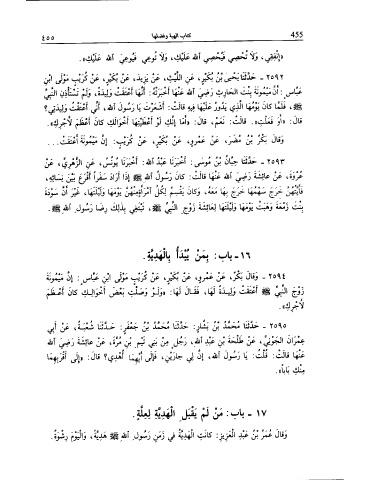 ٤٥٥ كتاب الهبة وفضلها 455
«أَنْفِقِي، وَلَا تُحْصِي فَيُحْصِيَ الله عَلَيْكِ، وَلَا تُوعِي فَيُوعِيَ الله عَلَيْكِ».
٢٥٩٢ - حَدَّثَنَا يَحْيَى بْنُ بُكَيْرٍ، عَنِ اللَّيْثِ، عَنْ يَزِيدَ، عَنْ بُكَيْرٍ، عَنْ كُرَيْبٍ مَوْلَى ابْنِ
عَبَّاسٍ: أَنَّ مَيْمُونَةَ بِنْتَ الحَارِثِ رَضِيَ الله عَنْهَا أَخْبَرَتْهُ: أَنَّهَا أَعْتَقَتْ وَلِيدَةً، وَلَمْ تَسْتَأْذِنِ النَّبِيَّ
ﷺ، فَلَمَّا كَانَ يَوْمُهَا الَّذِي يَدُورُ عَلَيْهَا فِيهِ قَالَتْ: أَشَعَرْتَ يَا رَسُولَ الله، أَنِّي أَعْتَقْتُ وَلِيدَتِي؟
قَالَ: «أَوَ فَعَلْتِ». قَالَتْ: نَعَمْ، قَالَ: «أَمَا إِنَّكِ لَوْ أَعْطَيْتِهَا أَخْوَالَكِ كَانَ أَعْظَمَ لأَجْرِكِ».
وَقَالَ بَكْرُ بْنُ مُضَرَ، عَنْ عَمْرٍو، عَنْ بُكَيْرٍ، عَنْ كُرَيْبٍ: إِنَّ مَيْمُونَةَ أَعْتَقَتْ...
٢٥٩٣ - حَدَّثَنَا حِبَّانُ بْنُ مُوسَى: أَخْبَرَنَا عَبْدُ الله: أَخْبَرَنَا يُونُسُ، عَنِ الزُّهْرِيِّ، عَنْ
عُرْوَةَ، عَنْ عَائِشَةَ رَضِيَ الله عَنْهَا قَالَتْ: كَانَ رَسُولُ الله ﷺ إِذَا أَرَادَ سَفَراً أَقْرَعَ بَيْنَ نِسَائِهِ،
فَأَيَّتُهُنَّ خَرَجَ سَهْمُهَا خَرَجَ بِهَا مَعَهُ، وَكَانَ يَقْسِمُ لِكُلِّ امْرَأَةٍ مِنْهُنَّ يَوْمَهَا وَلَيْلَتَهَا، غَيْرَ أَنَّ سَوْدَةَ
بِنْتَ زَمْعَةَ وَهَبَتْ يَوْمَهَا وَلَيْلَتَهَا لِعَائِشَةَ زَوْجِ النَّبِيِّ ﷺ، تَبْتَغِي بِذَلِكَ رِضَا رَسُولِ الله ﷺ.
١٦ - باب: بِمَنْ يُبْدَأُ بِالْهَدِيَّةِ.
٢٥٩٤ - وَقَالَ بَكْرٌ، عَنْ عَمْرٍو، عَنْ بُكَيْرٍ، عَنْ كُرَيْبٍ مَوْلَى ابْنِ عَبَّاسٍ: إِنَّ مَيْمُونَةَ
زَوْجَ النَّبِيِّ ﷺ أَعْتَقَتْ وَلِيدَةً لَهَا، فَقَالَ لَهَا: «وَلَوْ وَصَلْتِ بَعْضَ أَخْوَالِكِ كَانَ أَعْظَمَ
لأَجْرِكِ».
٢٥٩٥ - حَدَّثَنَا مُحَمَّدُ بْنُ بَشَّارٍ: حَدَّثَنَا مُحَمَّدُ بْنُ جَعْفَرٍ: حَدَّثَنَا شُعْبَةُ، عَنْ أَبِي
عِمْرَانَ الجَوْنِيِّ، عَنْ طَلْحَةَ بْنِ عَبْدِ الله، رَجُلٍ مِنْ بَنِي تَيْمِ بْنِ مُرَّةَ، عَنْ عَائِشَةَ رَضِيَ الله
عَنْهَا قَالَتْ: قُلْتُ: يَا رَسُولَ الله، إِنَّ لِي جَارَيْنِ، فَإِلَى أَيِّهِمَا أُهْدِي؟ قَالَ: «إِلَى أَقْرَبِهِمَا
مِنْكِ بَاباً».
١٧ - باب: مَنْ لَمْ يَقْبَلِ الْهَدِيَّةَ لِعِلَّةٍ.
وَقَالَ عُمَرُ بْنُ عَبْدِ الْعَزِيزِ: كَانَتِ الْهَدِيَّةُ فِي زَمَنِ رَسُولِ الله ﷺ هَدِيَّةً، وَالْيَوْمَ رِشْوَةٌ.